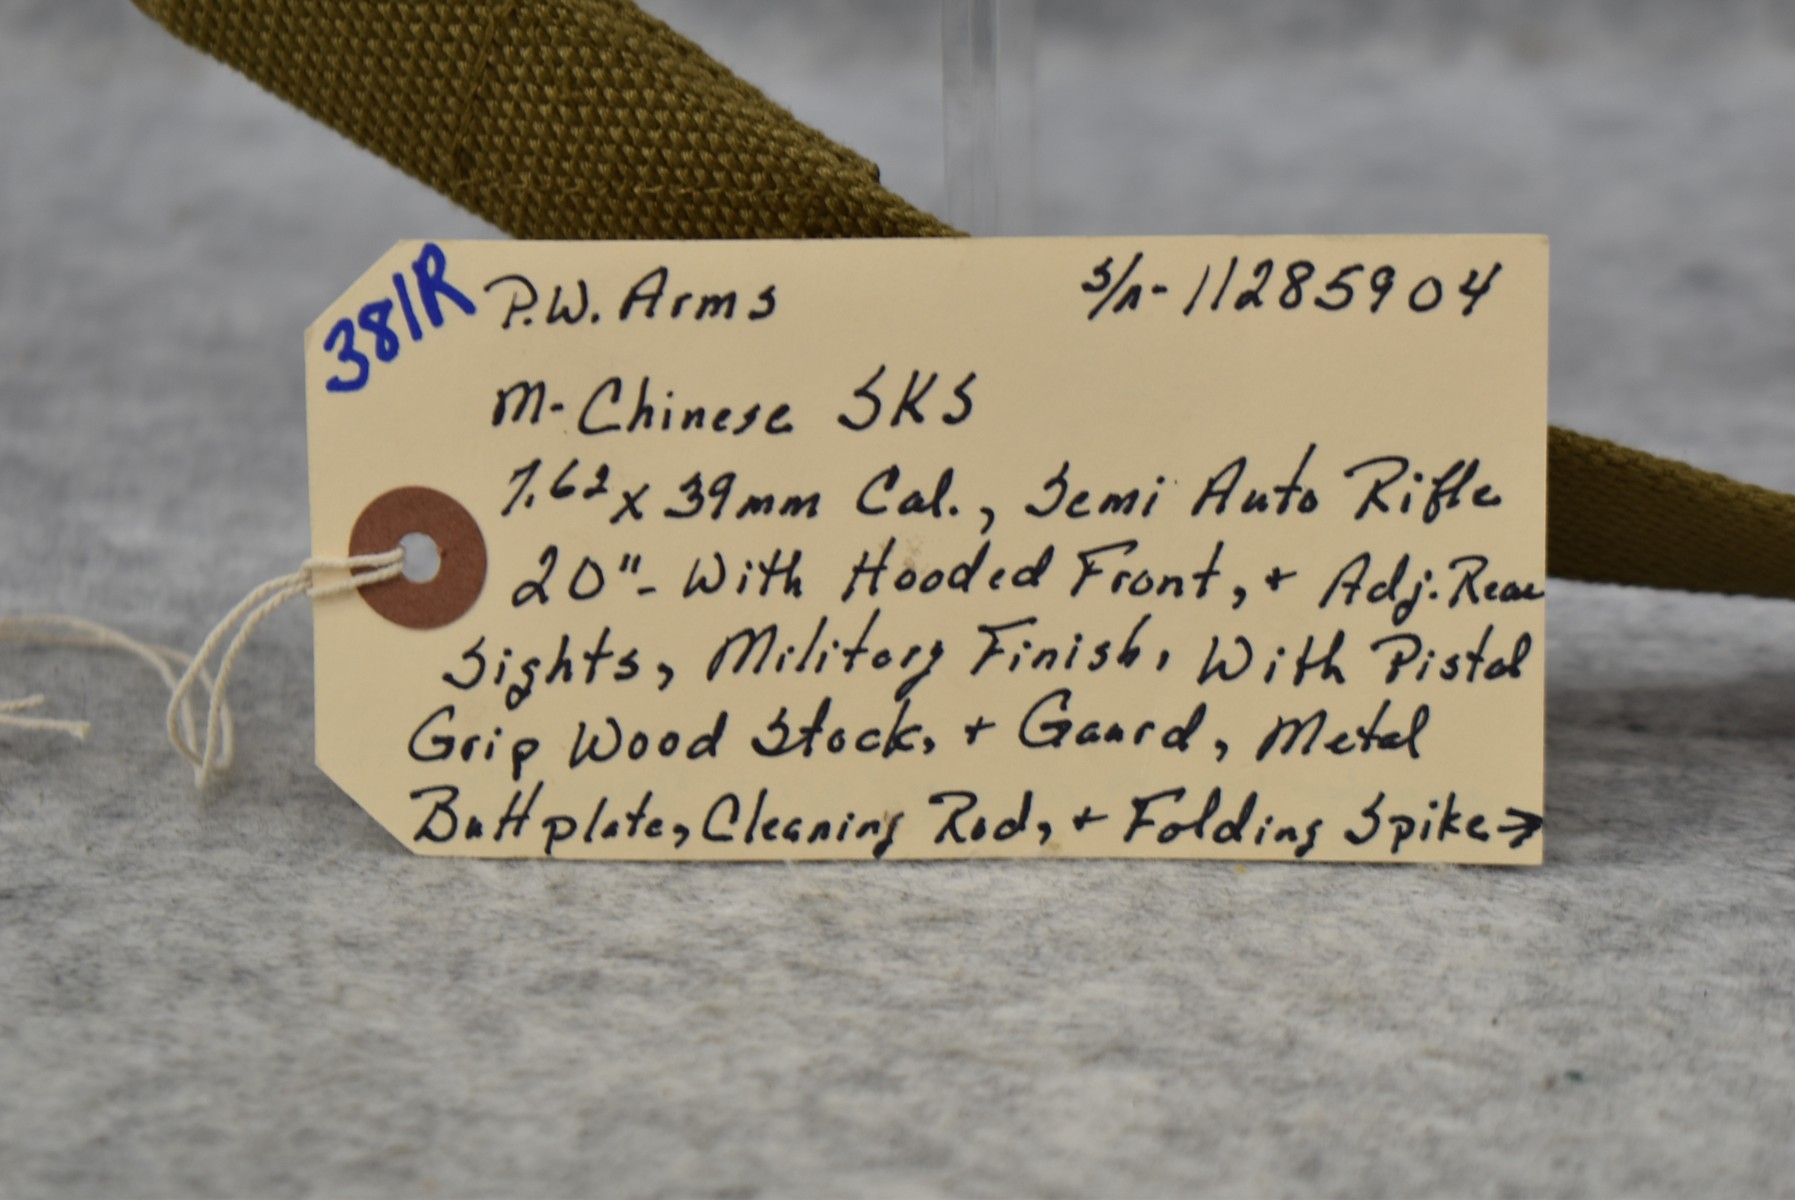 381R
P.W. Arms S/n-11285904
M-Chinese SKS
7.62 x 39mm Cal., Semi Auto Rifle
20"- With Hooded Front, + Adj. Rear
Sights, Military Finish, With Pistol
Grip Wood Stock, + Gaurd, Metal
Buttplate, Cleaning Rod, + Folding Spike→